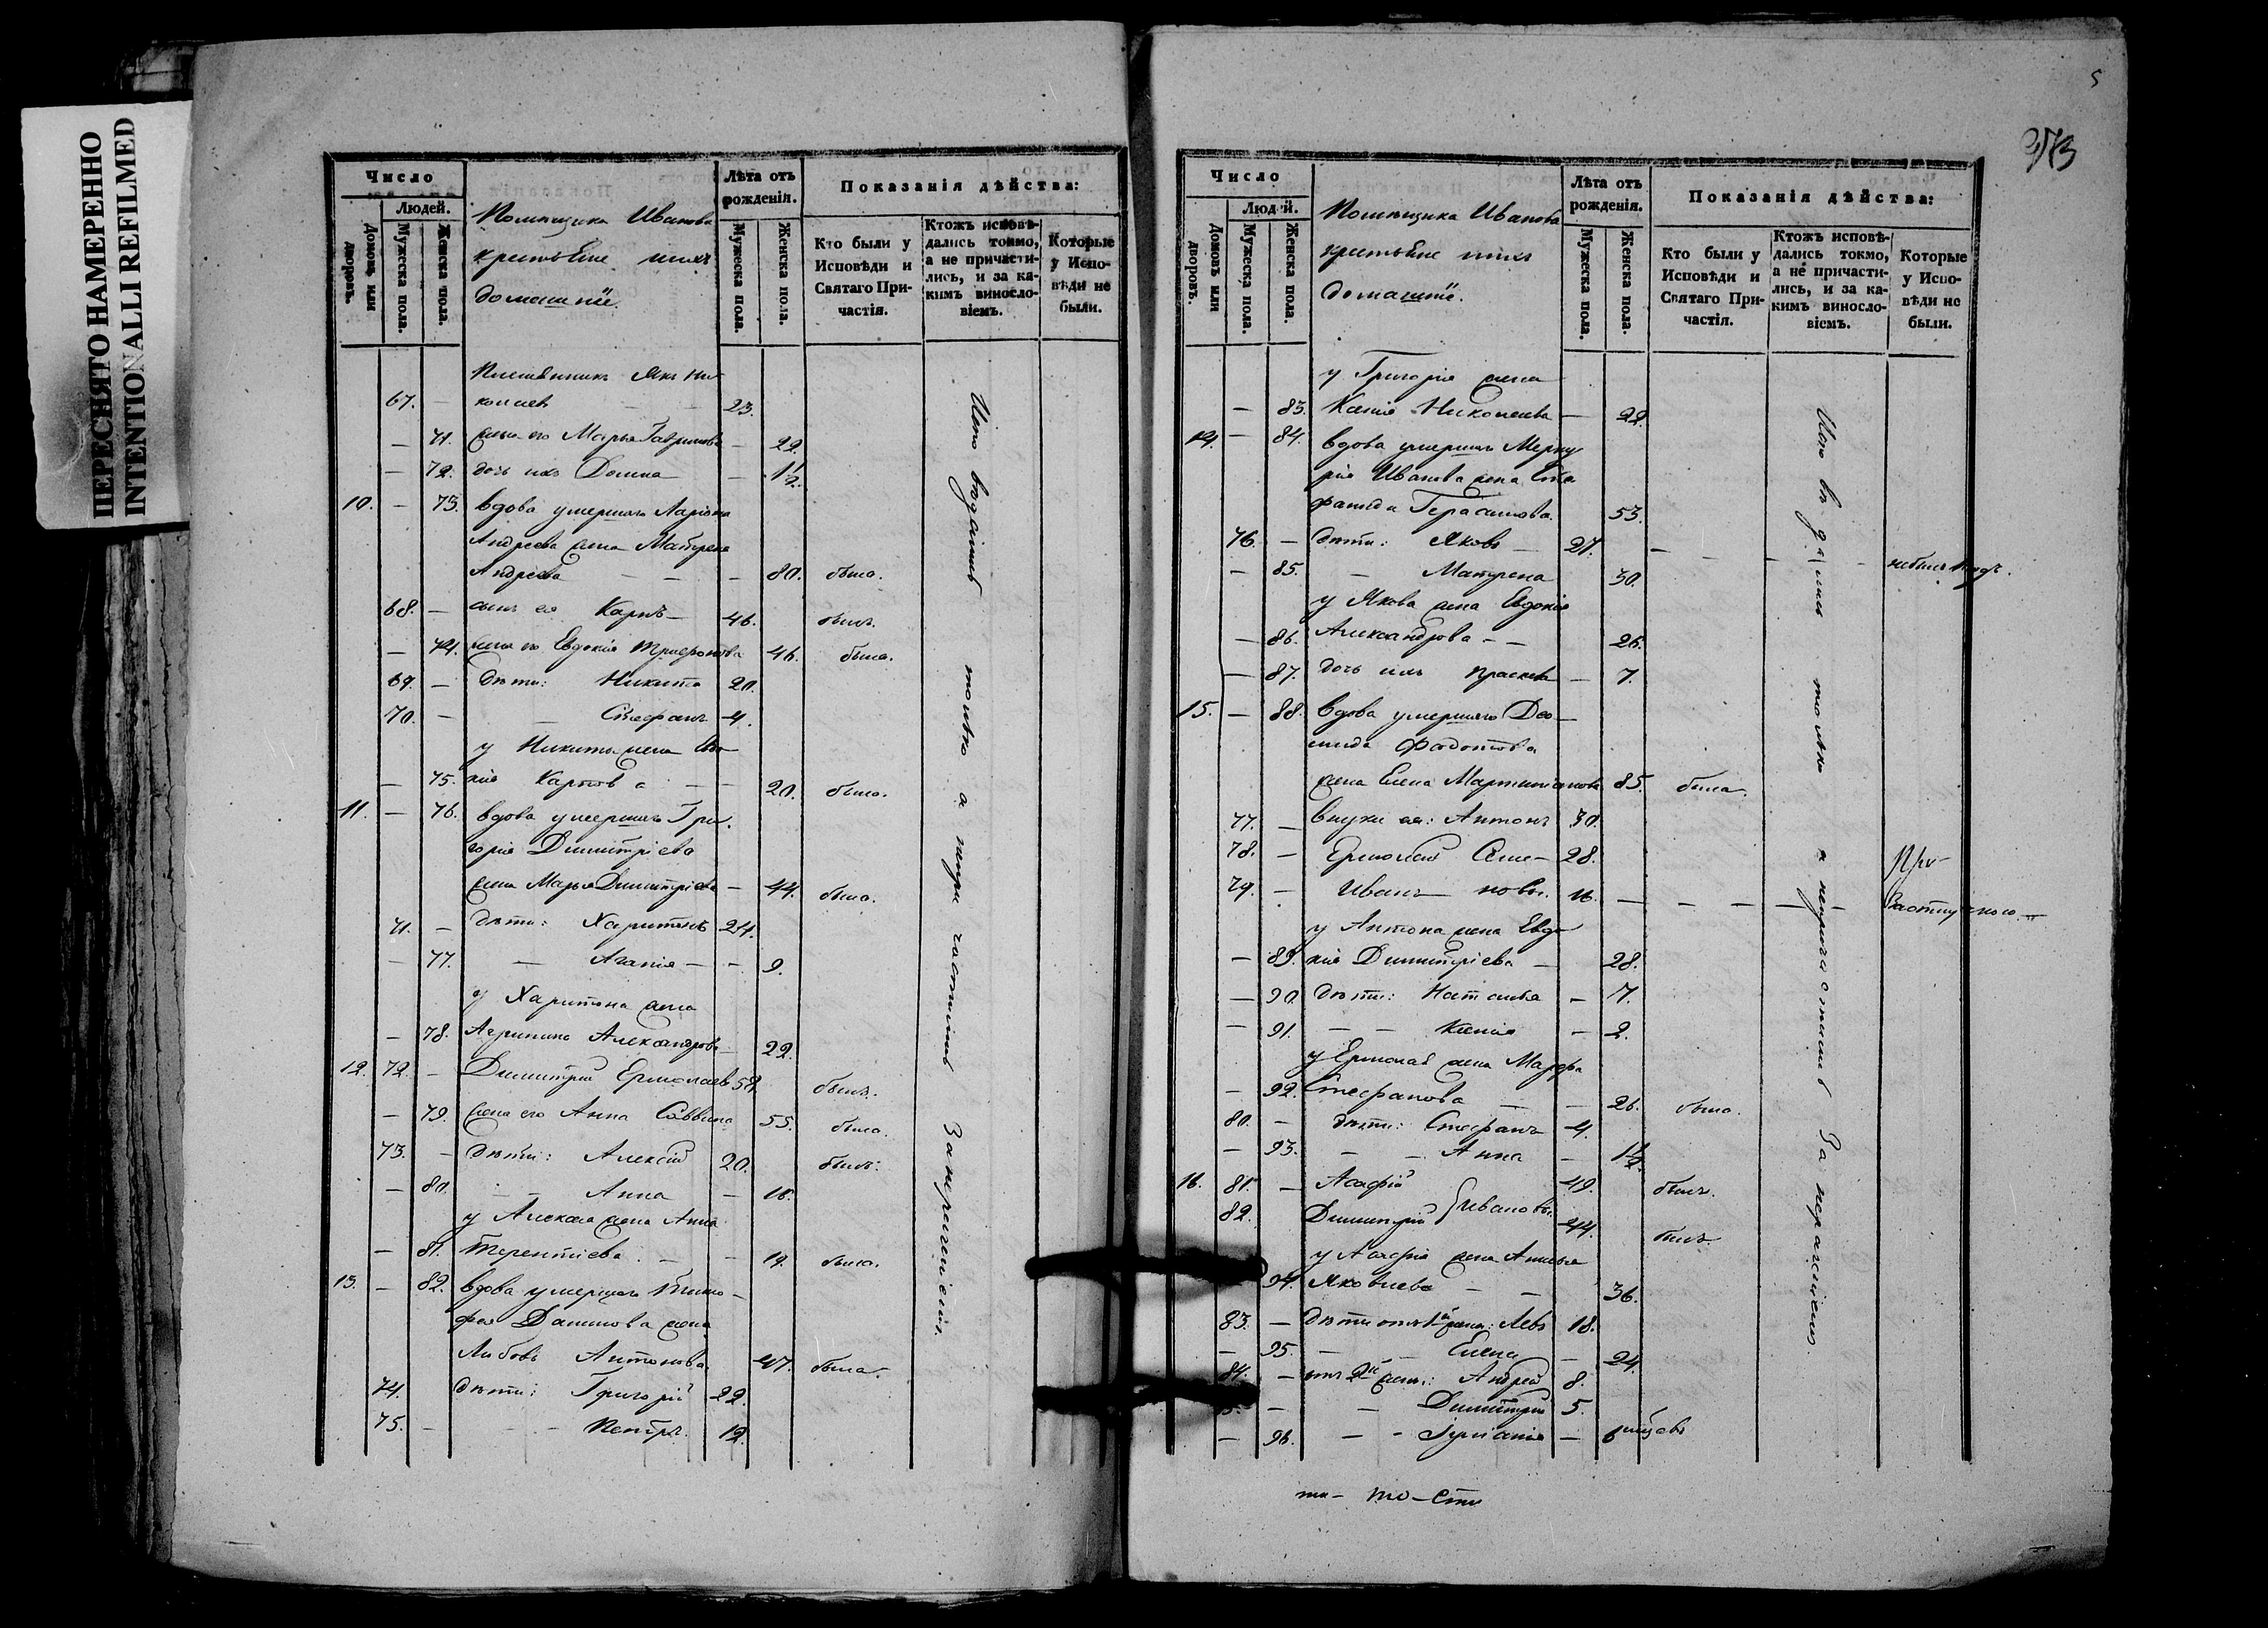 ПЕРЕСНЯТО НАМЕРЕННО
INTENTIONALLI REFILMED
Число
Людей.
Домовъ или дворовъ.
Мужеска пола.
Женска пола.
Помѣщика Иванова
крестьяне ихъ
домашніе.
Лѣта отъ рожденія.
Мужеска пола.
Женска пола.
Показанія дѣйства:
Кто были у Исповѣди и Святаго Причастія.
Ктожъ исповѣдались токмо, а не причастились, и за какимъ винословіемъ.
Которые у Исповѣди не были.
67. — 23.
— 71. жена его Марья — 22.
— 72. дочь ихъ Домна — 1½.
10. — 73. вдова умершаго Ларіона
Андреева жена Матрена
Андреева — — — 80. была.
68. — сынъ ея Карпъ — 46. былъ.
— 74. жена его Евдокія 46. была.
69. — дѣти: Никита 20.
70. — — Стефанъ 4.
у Никиты жена Евдо
— 75. кія Карпова — — 20. была.
11. — 76. вдова умершаго Гри-
горія Димитріева
жена Марья Димитріева — 44. была.
71. — дѣти: Харитонъ 24.
— 77. — Агапія — — 9.
у Харитона жена
— 78. Агрипина Александрова — 22.
12. 72. — Димитрій Ермолаевъ 59. былъ.
— 79. жена его Анна Саввина 55. была.
73. — дѣти: Алексій 20. былъ.
— 80. — — Анна — 16.
у Алексія жена Анна
— 81. Терентіева. — — 19. была.
13. — 82. вдова умершаго Тимо-
фея Данилова жена
Любовь Антонова 47. была.
74. дѣти: Григорій 22.
75. — — — Петръ. 12.
токмо а не причастились За
5
373
Число
Людей.
Домовъ или дворовъ.
Мужеска пола.
Женска пола.
Помѣщика Иванова
крестьяне ихъ
домашніе.
Лѣта отъ рожденія.
Мужеска пола.
Женска пола.
Показанія дѣйства:
Кто были у Исповѣди и Святаго Причастія.
Ктожъ исповѣдались токмо, а не причастились, и за какимъ винословіемъ.
Которые у Исповѣди не были.
у Григорія жена
— 83. Ксенія Николаева — 22.
14. — 84. вдова умершаго Мерку
рія Иванова жена Сте
фанида Герасимова. 53.
76. — дѣти: Яковъ — 27. — — —
— 85. — Матрена 30.
у Якова жена Евдокія
— 86. Александрова — — 26.
— 87. дочь ихъ — 7.
15. — 88. вдова умершаго Део-
мида Федотова
жена Елена Мартиніанова 85. была.
77. — внуки ея: Антонъ 30.
78. — Ермолай Семе- 28.
79. — Иванъ — новы. 16. — — — — —
у Антона жена Евдо
— 89. кія Димитріева — 28.
— 90. дѣти: Наталья — 7.
— 91. — — Ксенія — 2.
у Ермолая жена Марфа
— 92. Стефанова — — 26. была.
80. — дѣти: Стефанъ 4.
— 93. — — Анна — 1½.
16. 81. — 49. былъ.
82. Димитрій } Ивановы. 44. былъ.
94. Яковлева — — 36.
83. — дѣти отъ 1й жены: Левъ 18.
— 95. — — Елена — 24.
84. — отъ 2й жены: Андрей 8.
— — Димитрій 5.
— 96. — —
токмо а не причастились За